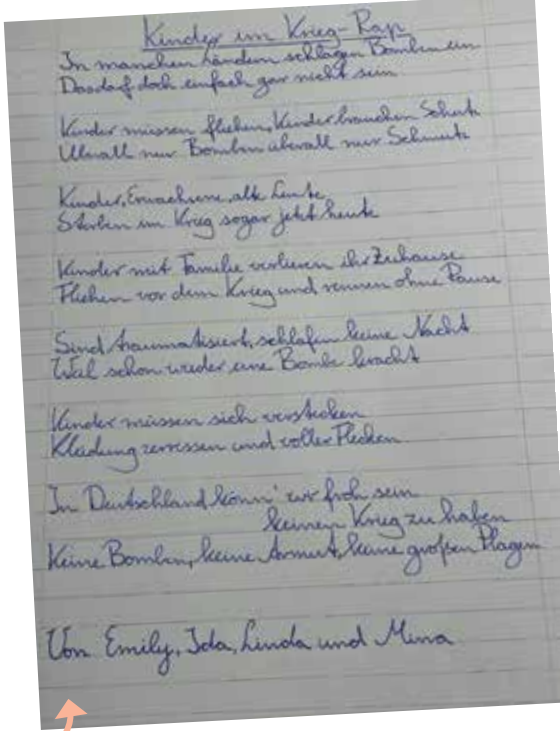 Kinder im Krieg-Rap
In manchen Ländern schlagen Bomben ein
Das darf doch einfach gar nicht sein
Kinder müssen fliehen, Kinder brauchen Schutz
Überall nur Bomben überall nur Schmutz
Kinder, Erwachsene, alte Leute
Sterben im Krieg sogar jetzt heute
Kinder mit Familie verlieren ihr Zuhause
Fliehen vor dem Krieg und rennen ohne Pause
Sind traumatisiert, schlafen keine Nacht
Weil schon wieder eine Bombe kracht
Kinder müssen sich verstecken
Kleidung zerrissen und voller Flecken
In Deutschland könn' wir froh sein
keinen Krieg zu haben
Keine Bomben, keine Armut, keine großen Plagen
Von Emily, Ida, Linda und Mina